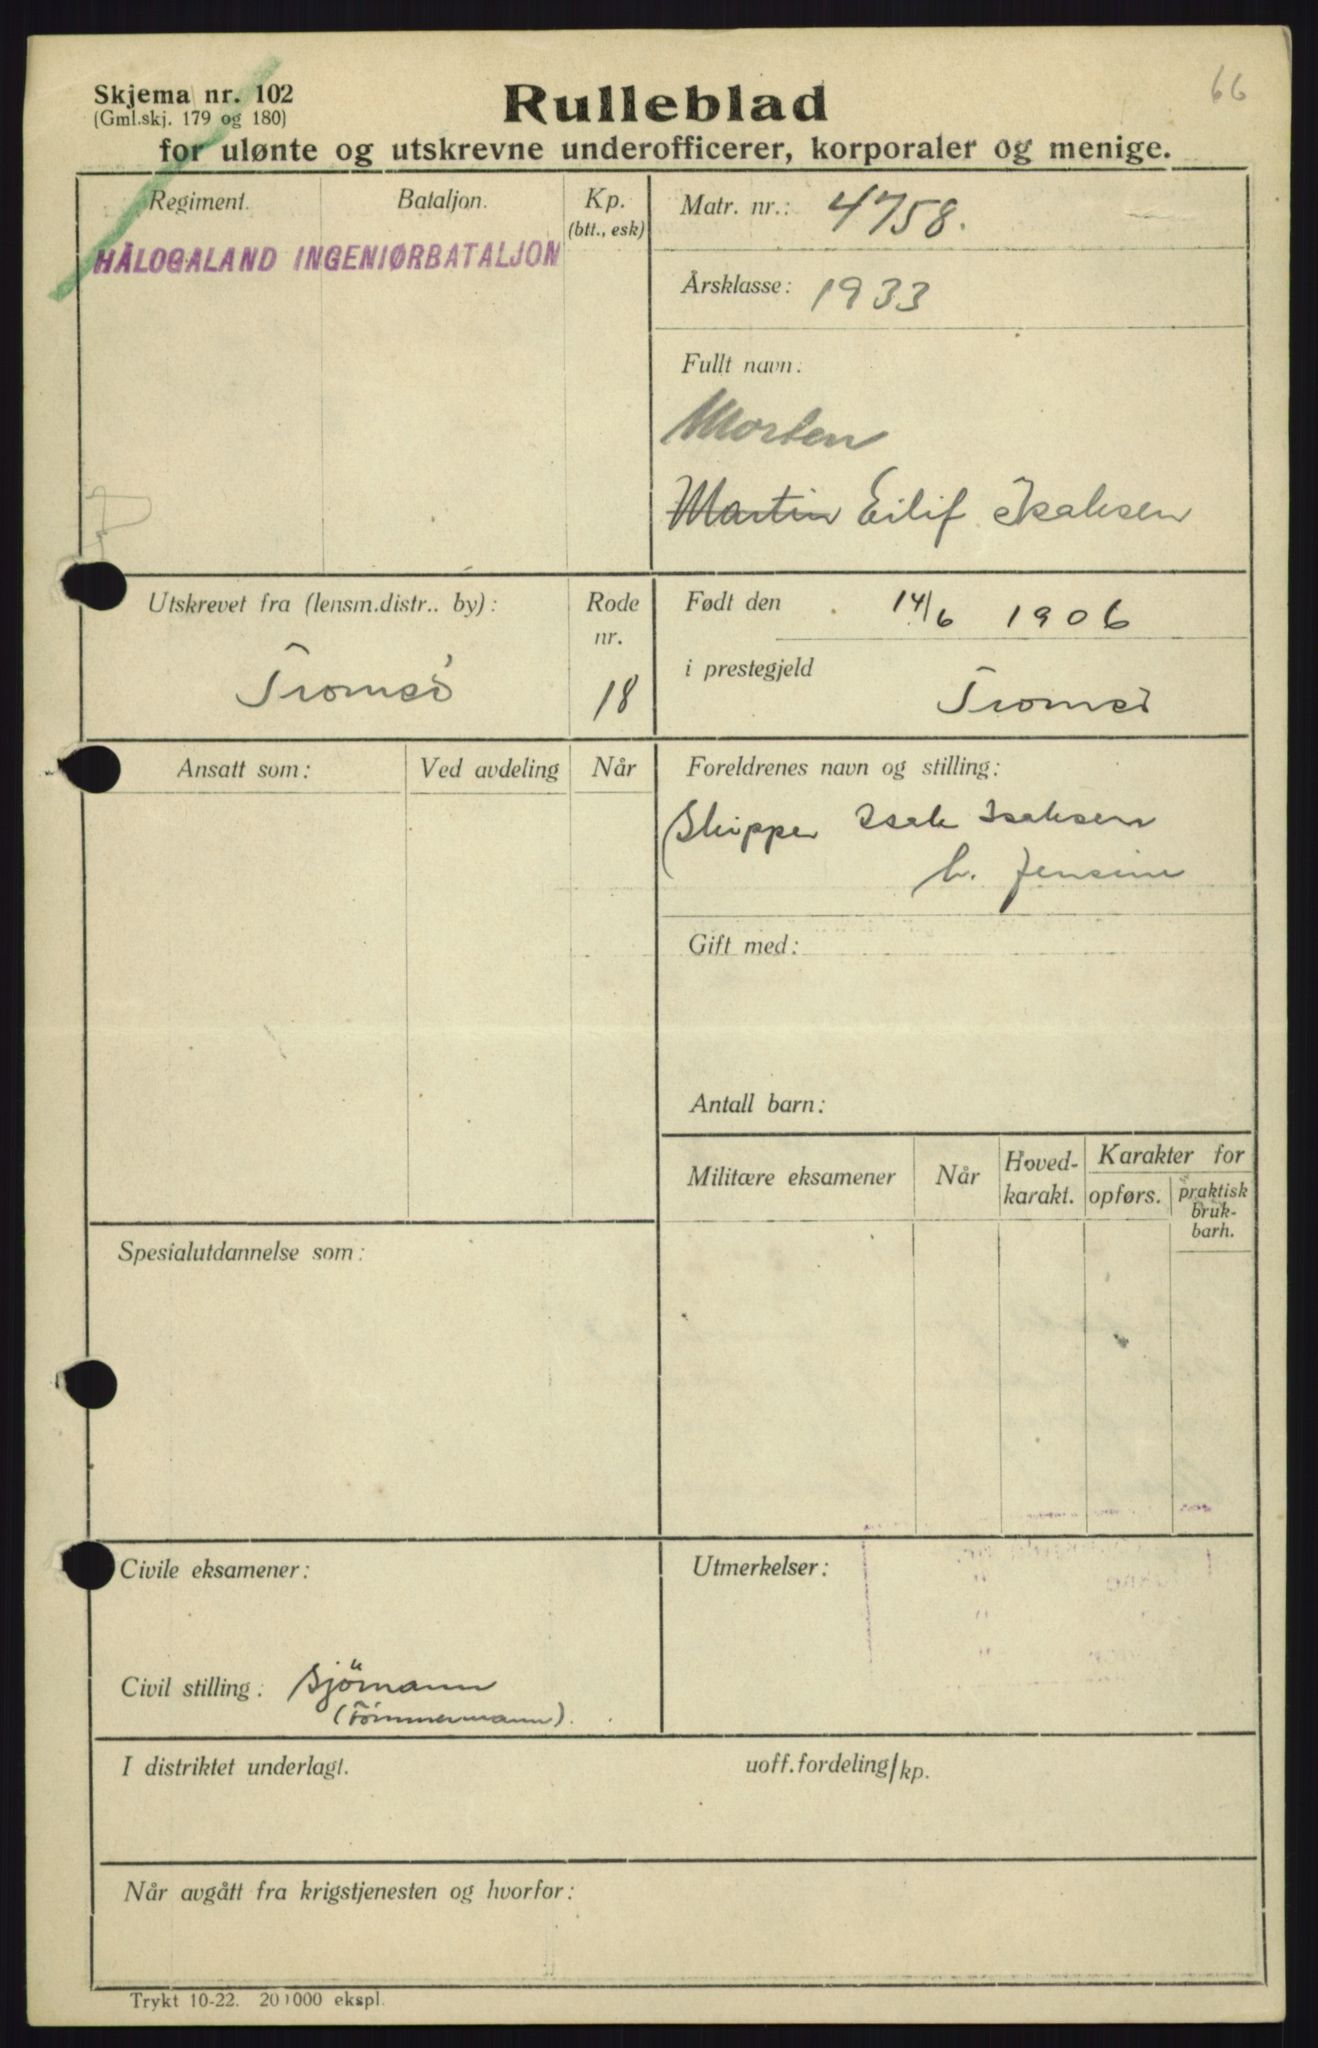 66
Skjema nr. 102
(Gml.skj. 179 og 180)
Rulleblad
for ulønte og utskrevne underofficerer, korporaler og menige.
Regiment.
Bataljon.
Kp.
(btt., esk)
HÅLOGALAND INGENIØRBATALJON
Matr. nr.: 4758.
Årsklasse: 1933
Fullt navn:
Morten
Martin Eilif Isaksen
Utskrevet fra (lensm.distr.. by):
Tromsö
Rode
nr.
18
Født den 14/6 1906
i prestegjeld
Tromsö
Ansatt som:
Ved avdeling
Når
Foreldrenes navn og stilling:
Skipper Isak Isaksen
h. Jensine
Gift med:
Antall barn:
Militære eksamener
Når
Hoved-
karakt.
Karakter for
opførs.
praktisk
bruk-
barh.
Spesialutdannelse som:
Civile eksamener:
Civil stilling: Sjömann
(Tömmermann).
Utmerkelser:
I distriktet underlagt.
uoff.fordeling/kp.
Når avgått fra krigstjenesten og hvorfor:
Trykt 10-22. 201000 ekspl.